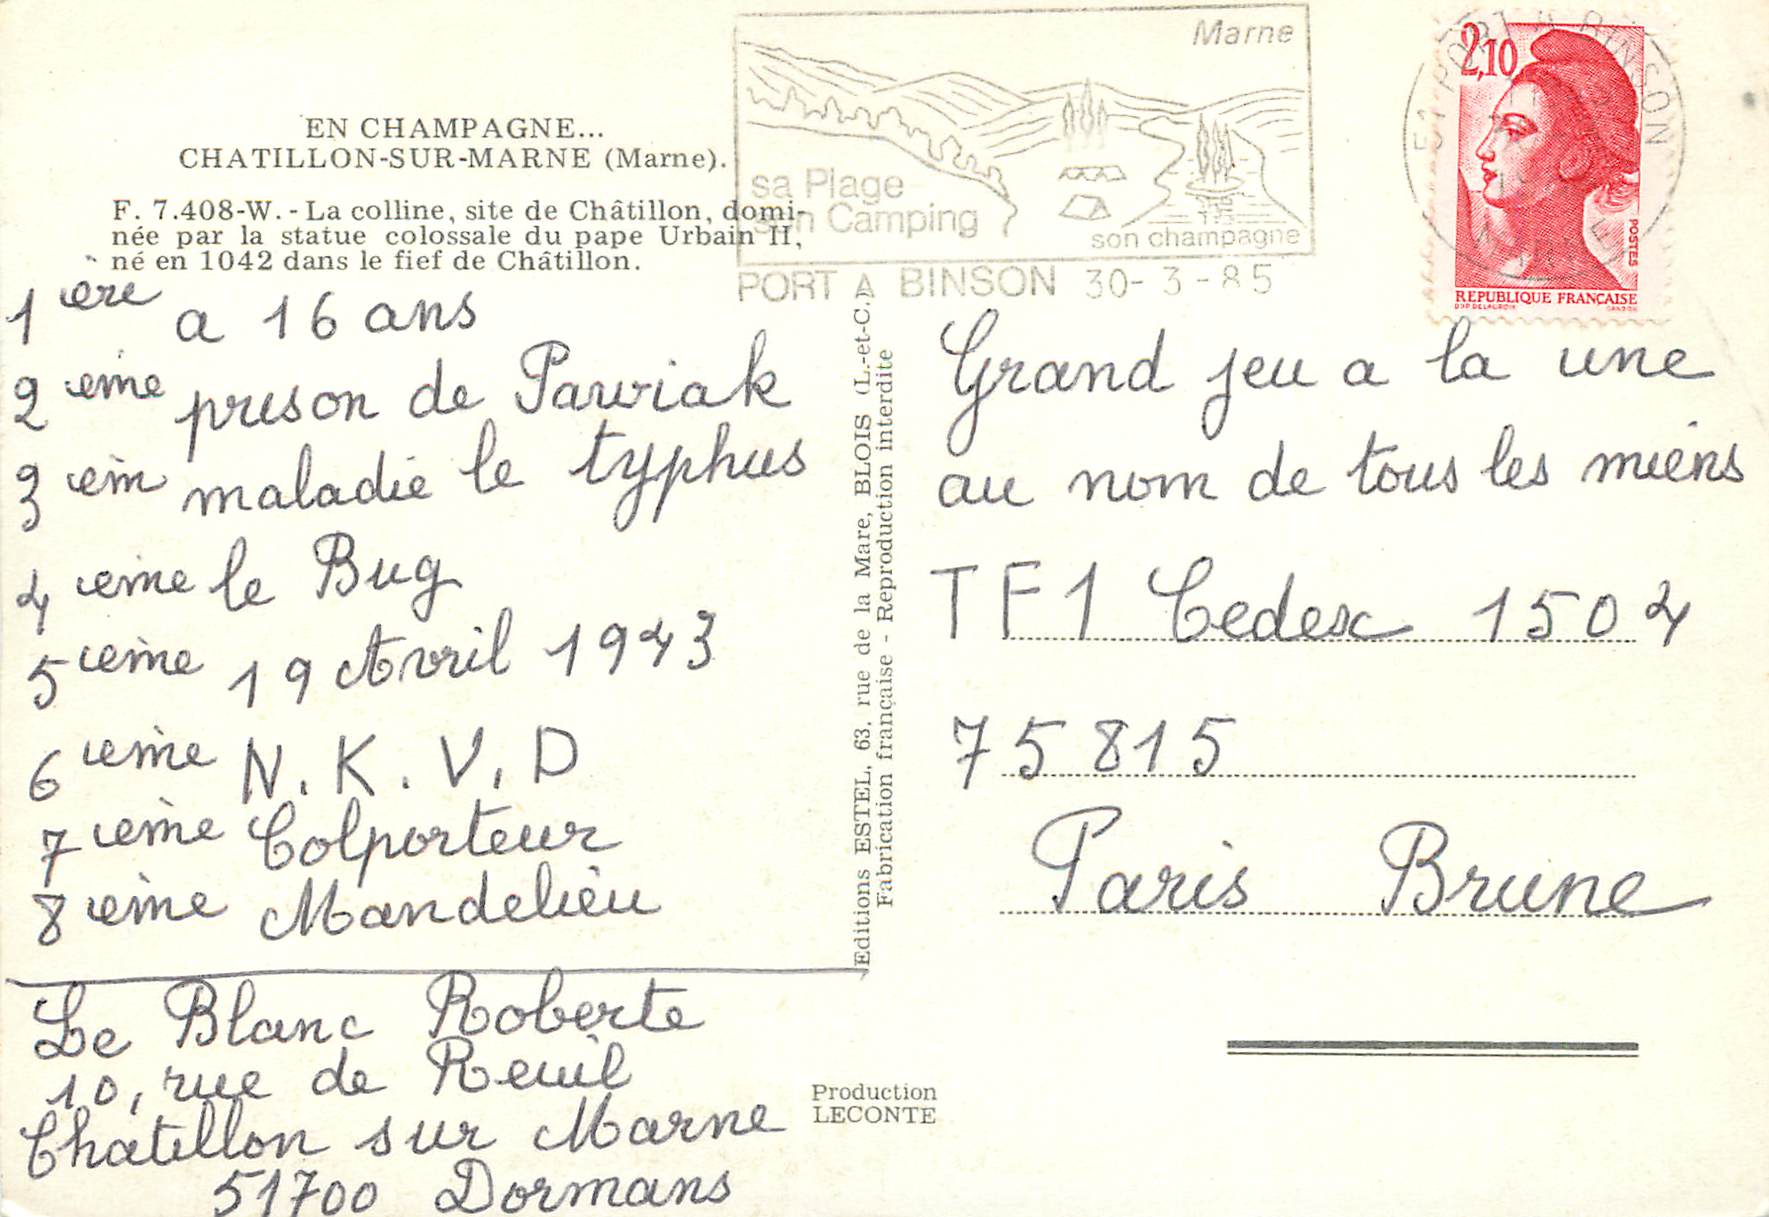 EN CHAMPAGNE...
CHATILLON-SUR-MARNE (Marne).
F. 7.408-W. - La colline, site de Châtillon, domi-
née par la statue colossale du pape Urbain II,
né en 1042 dans le fief de Châtillon.
Marne
sa Plage
son Camping
son champagne
PORT A BINSON 30-3-85
51 PORT A BINSON
MARNE
2,10
POSTES
REPUBLIQUE FRANÇAISE
D'AP DELACROIX
GANDON
1ere a 16 ans
2eme prison de Pawiak
3em maladie le typhus
4eme le Bug
5ieme 19 Avril 1943
6ieme N.K.V.D
7ieme Colporteur
8ieme Mandelieu
Le Blanc Roberte
10, rue de Reuil
Chatillon sur Marne
51700 Dormans
Editions ESTEL, 63, rue de la Mare, BLOIS (L.-et-C.)
Fabrication française - Reproduction interdite
Grand jeu a la une
au nom de tous les miens
TF1 Cedex 1504
75815
Paris Brune
Production
LECONTE